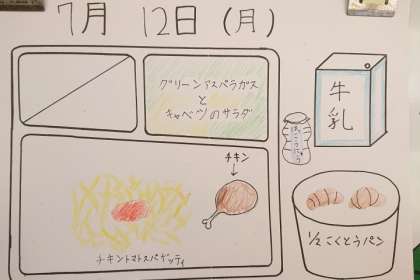 7月 12日 (月)
グリーンアスパラガス
と
キャベツのサラダ
牛
乳
はっこうにゅう
チキン
チキントマトスパゲッティ
1/2 こくとうパン